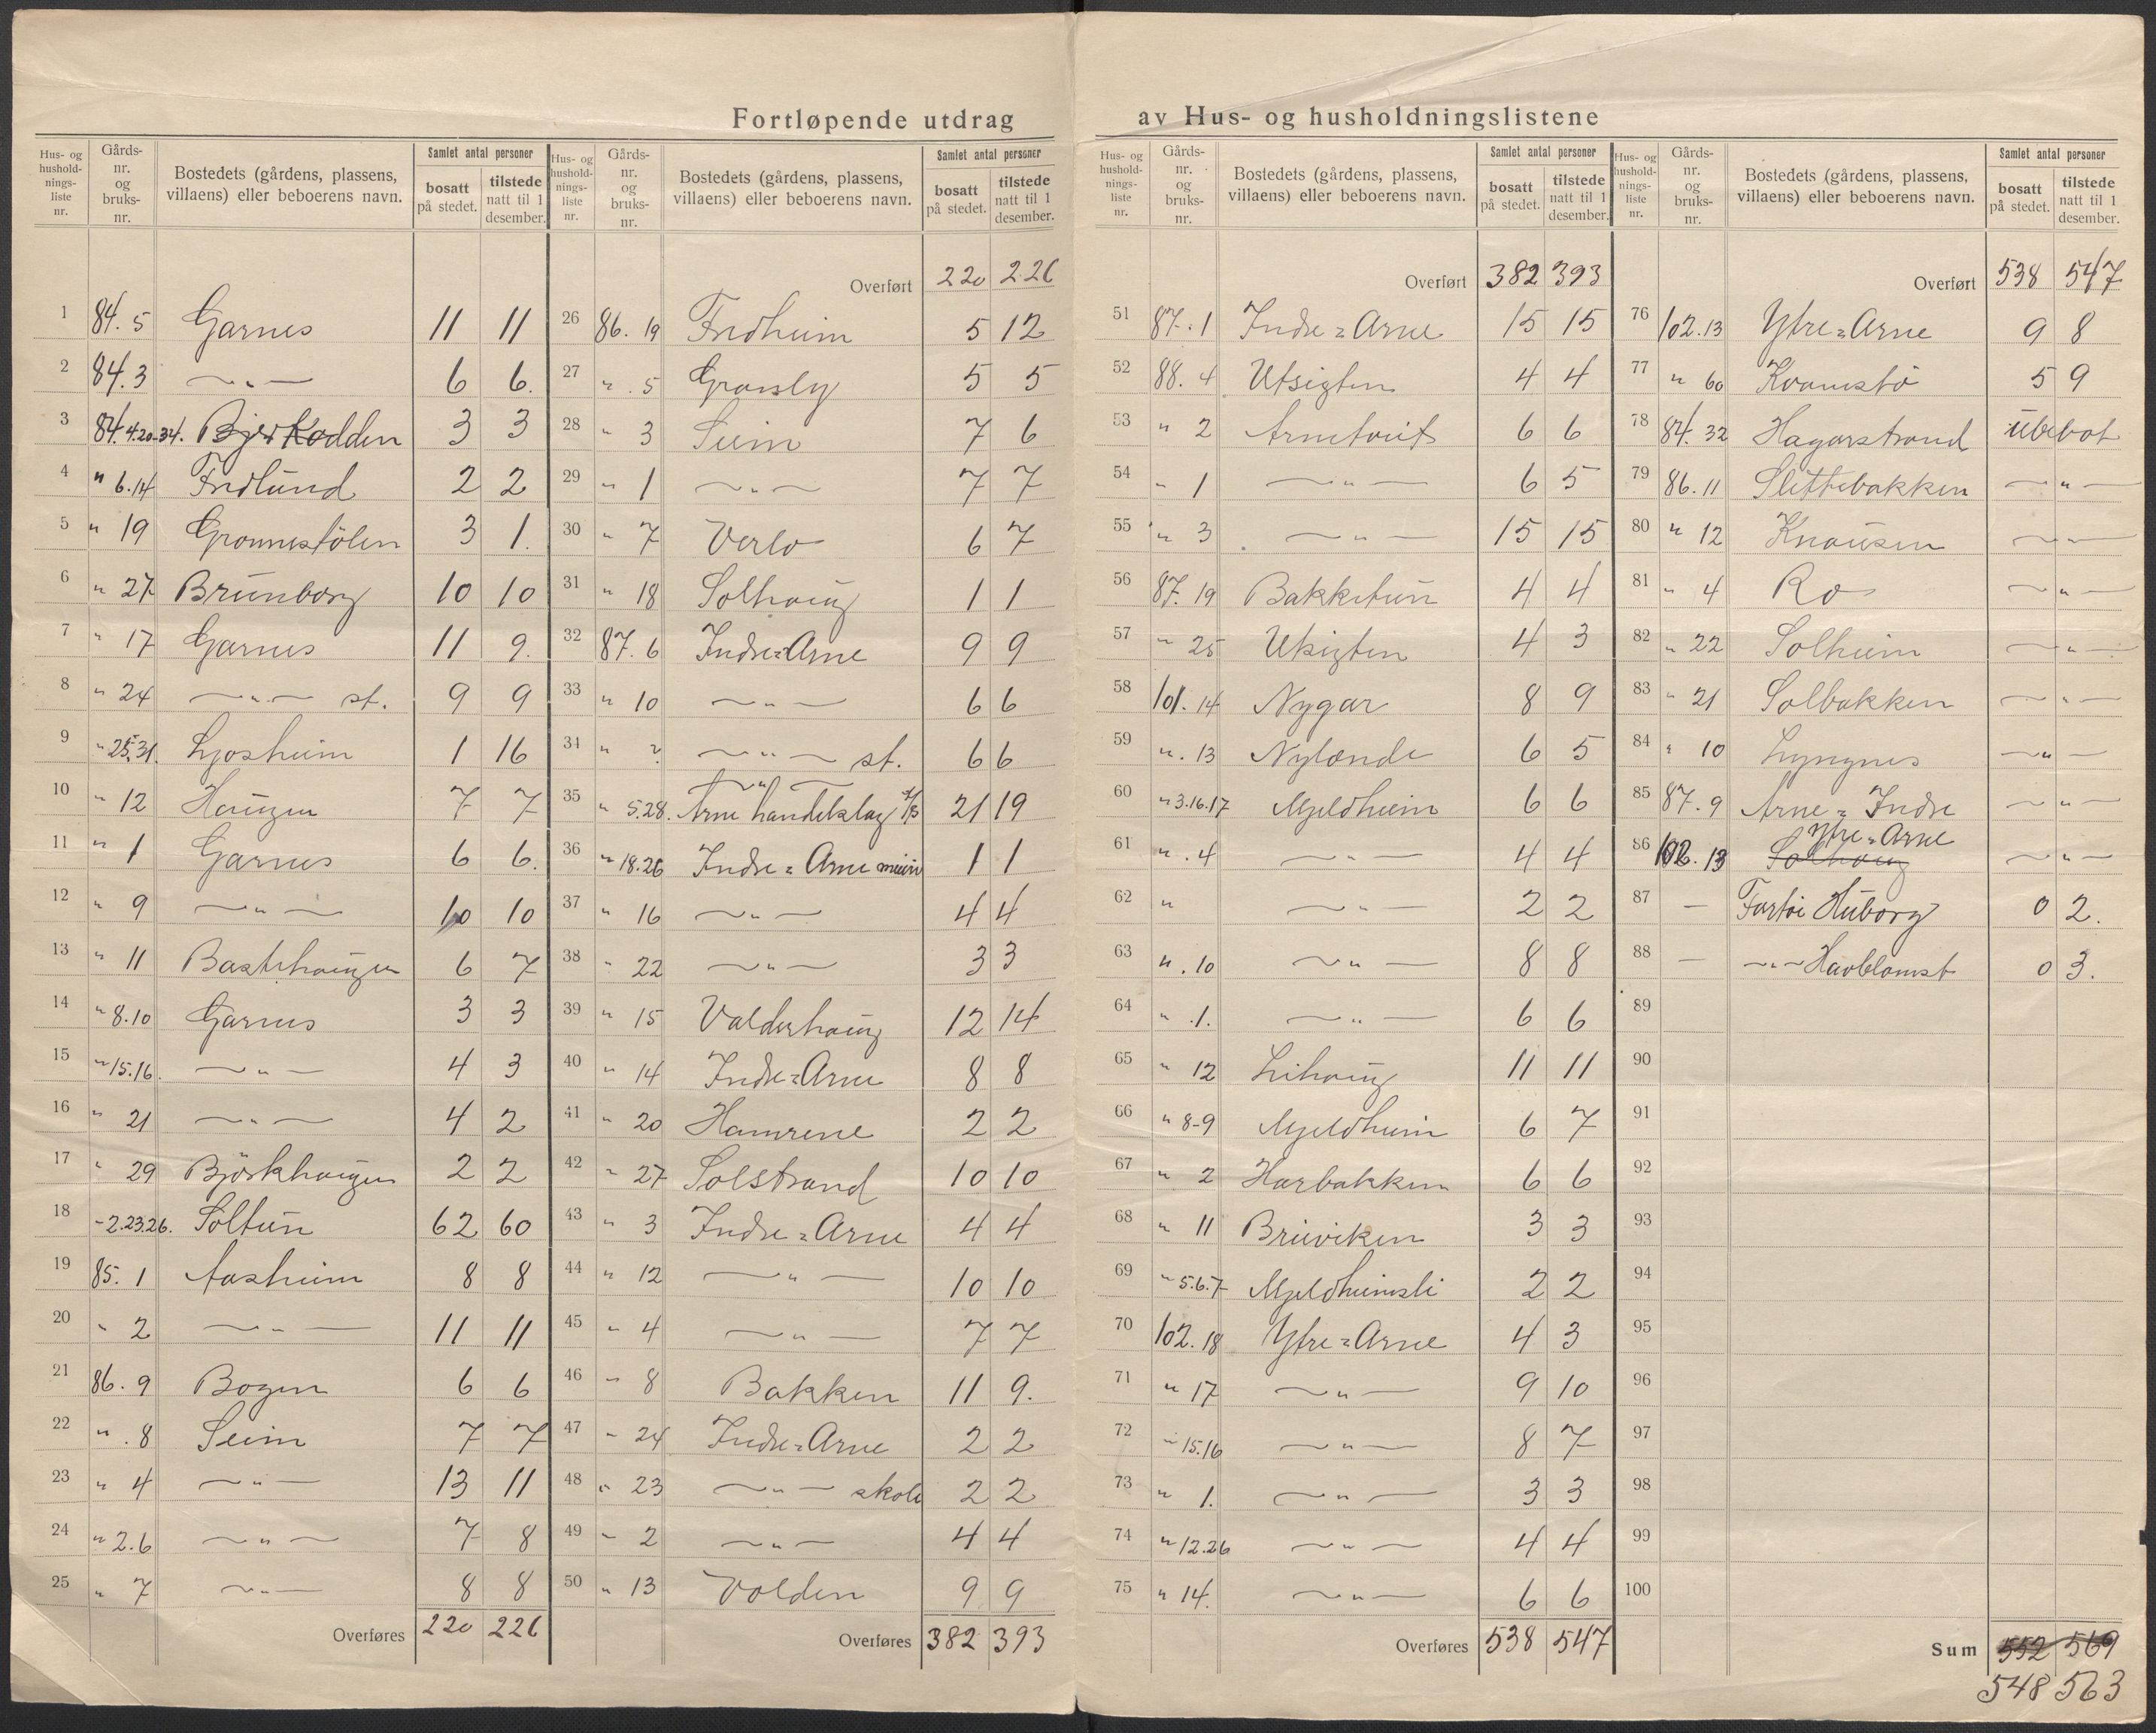 Fortløpende utdrag av Hus- og husholdningslistene
Hus- og husholdnings-liste nr. | Gårds-nr. og bruks-nr. | Bostedets (gårdens, plassens, villaens) eller beboerens navn. | Samlet antal personer bosatt på stedet. | tilstede natt til 1 desember.
1 84. 5 Garnes 11 11
2 84. 3 —„— 6 6.
3 84. 4.20-34. Bjerkodden 3 3
4 „ 6.14 Fredlund 2 2
5 „ 19 Gronnestölen 3 1.
6 „ 27 Brunborg 10 10
7 „ 17 Garnes 11 9.
8 „ 24 —„— st. 9 9
9 „ 25.31. Ljosheim 1 16
10 „ 12 Haugen 7 7
11 „ 1 Garnes 6 6.
12 „ 9 —„— 10 10
13 „ 11 Bastehaugen 6 7
14 „ 8.10 Garnes 3 3
15 „ 15.16. —„— 4 3
16 „ 21 —„— 4 2
17 „ 29 Björkhaugen 2 2
18 „ 2.23.26. Soltun 62 60
19 85. 1 Aasheim 8 8
20 „ 2 —„— 11 11
21 86. 9 Bogen 6 6
22 „ . 8 Seim 7 7
23 „ 4 —„— 13 11
24 „ 2.6 —„— 7 8
25 „ 7 —„— 8 8
Overføres 220 226
Hus- og husholdnings-liste nr. | Gårds-nr. og bruks-nr. | Bostedets (gårdens, plassens, villaens) eller beboerens navn. | Samlet antal personer bosatt på stedet. | tilstede natt til 1 desember.
Overført 220 226
26 86. 19 Fredheim 5 12
27 „ . 5 Gransly 5 5
28 „ 3 Seim 7 6
29 „ 1 —„— 7 7
30 „ 7 Verlo 6 7
31 „ 18 Solhaug 1 1
32 87. 6 Indre=Arne 9 9
33 „ 10 —„— 6 6
34 „ ? —„— st. 6 6
35 „ 5.28. —„— Arne handelslag 21 19
36 „ 18.26 Indre=Arne 1 1
37 „ 16 —„— 4 4
38 „ 22 —„— 3 3
39 „ 15 Valderhaug 12 14
40 „ 14 Indre=Arne 8 8
41 „ 20 Hamrene 2 2
42 „ 27 Solstrand 10 10
43 „ 3 Indre=Arne 4 4
44 „ 12 —„— 10 10
45 „ 4 —„— 7 7
46 „ 8 Bakken 11 9.
47 „ 24 Indre=Arne 2 2
48 „ 23 —„— skole 2 2
49 „ 2 —„— 4 4
50 „ 13 Volden 9 9
Overføres 382 393
Hus- og husholdnings-liste nr. | Gårds-nr. og bruks-nr. | Bostedets (gårdens, plassens, villaens) eller beboerens navn. | Samlet antal personer bosatt på stedet. | tilstede natt til 1 desember.
Overført 382 393
51 87. 1 Indre=Arne 15 15
52 88. 4 Utsigten 4 4
53 „ 2 Arnetveit 6 6
54 „ 1 —„— 6 5
55 „ 3 —„— 15 15
56 87. 19 Bakketun 4 4
57 „ 25 Utsigten 4 3
58 101. 14 Nygar 8 9
59 „ . 13 Nylænde 6 5
60 „ 3.16.17 Mjeldheim 6 6
61 „ . 4 —„— 4 4
62 „ —„— 2 2
63 „ . 10 —„— 8 8
64 „ . 1. —„— 6 6
65 „ 12 Lihaug 11 11
66 „ 8-9 Mjeldheim 6 7
67 „ 2 Harbakken 6 6
68 „ 11 Bruviken 3 3
69 „ 5.6.7 Mjeldheimsli 2 2
70 102. 18 Ytre=Arne 4 3
71 „ 17 —„— 9 10
72 „ 15.16 —„— 8 7
73 „ 1. —„— 3 3
74 „ 12.26 —„— 4 4
75 „ 14. —„— 6 6
Overføres 538 547
Hus- og husholdnings-liste nr. | Gårds-nr. og bruks-nr. | Bostedets (gårdens, plassens, villaens) eller beboerens navn. | Samlet antal personer bosatt på stedet. | tilstede natt til 1 desember.
Overført 538 547
76 102. 13 Ytre=Arne 9 8
77 „ 60 Kvamstö 5 9
78 84. 32 Hagarstrand ubebot
79 86. 11 Slettebakken —„—
80 „ 12 Knausen —„—
81 „ 4 Ro —„—
82 „ 22 Solheim —„—
83 „ 21 Solbakken —„—
84 „ 10 Lyngnes —„—
85 87. 9 Arne=Indre —„—
86 102. 13 Solhaug Ytre=Arne —„—
87 — Fartøi Huborg 0 2.
88 — —„— Havblomst 0 3.
89
90
91
92
93
94
95
96
97
98
99
100
Sum 552 569
548 563